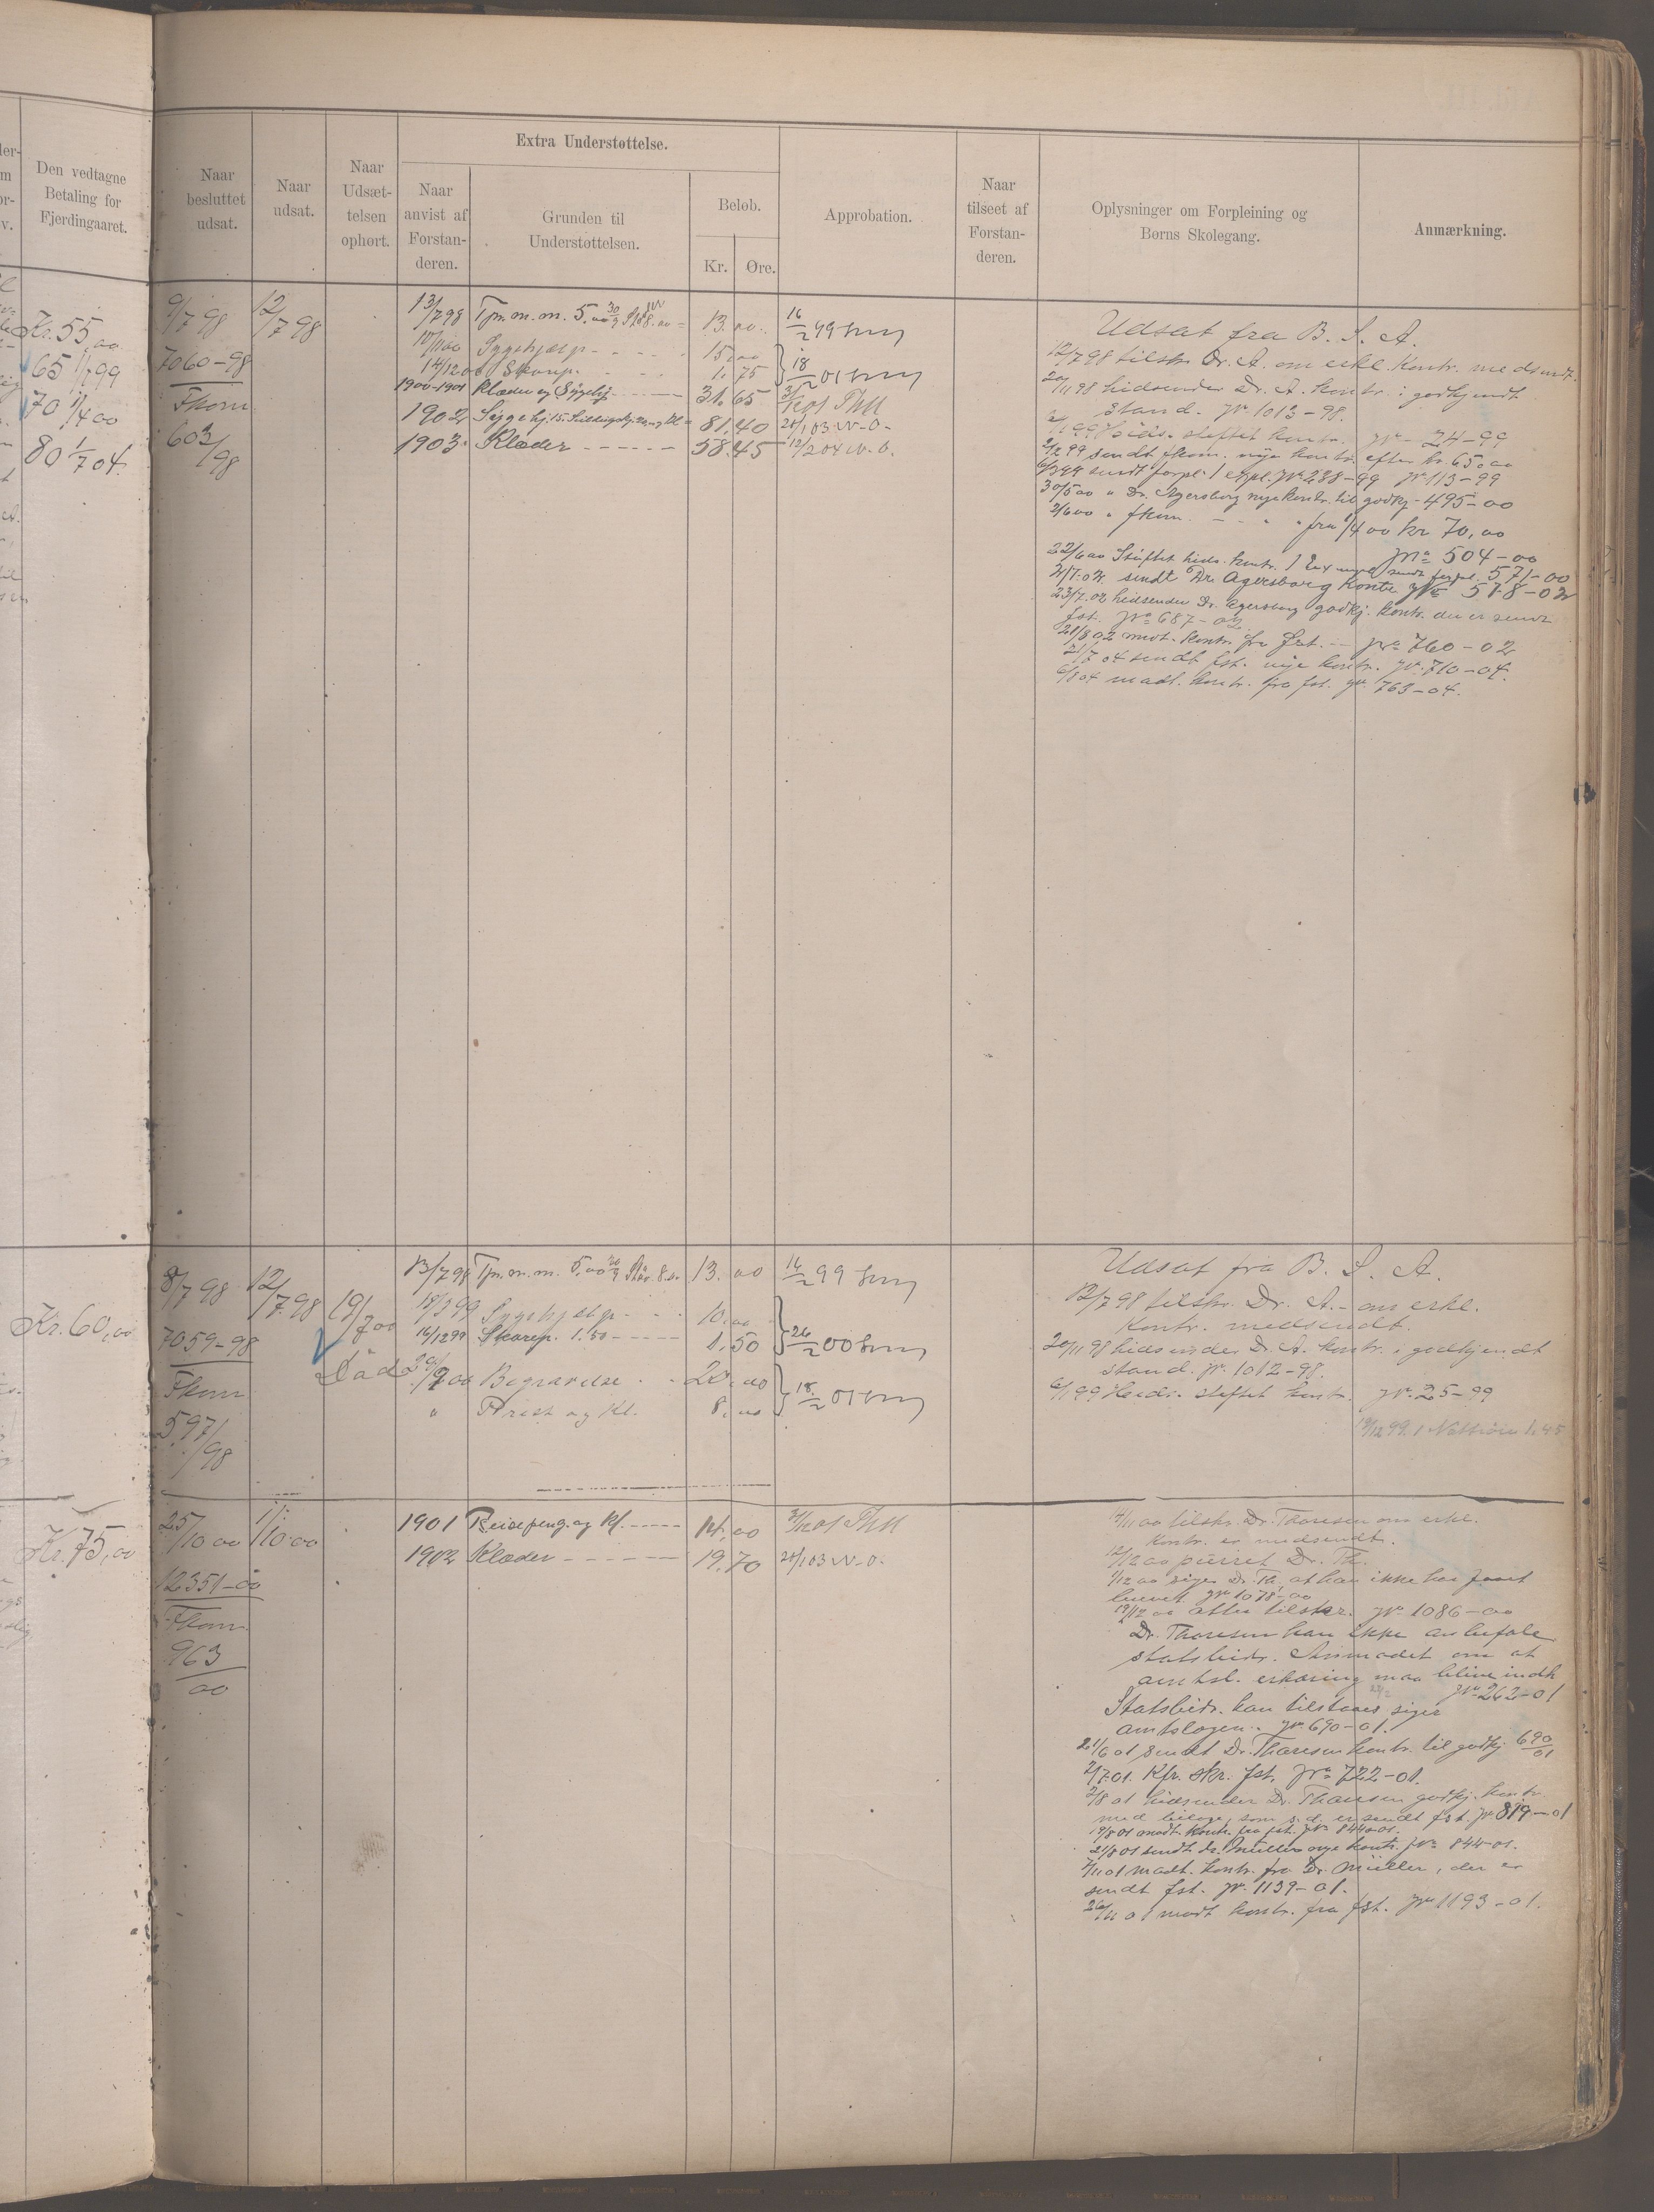 Den vedtagne
Betaling for
Fjerdingaaret.
Naar
besluttet
udsat.
Naar
udsat.
Naar
Udsæt-
telsen
ophørt.
Extra Understøttelse.
Naar
anvist af
Forstan-
deren.
Grunden til
Understøttelsen.
Beløb.
Kr.
Øre.
Approbation.
Naar
tilseet af
Forstan-
deren.
Oplysninger om Forpleining og
Børns Skolegang.
Anmærkning.
Kr. 55,00
65 1/1 99
70 1/4 00
80 1/7 04
9/7 98 12/7 98
7060-98
Fkom
603/98
13/7 98 Tpm. m. m. 5,00 8.00 = 13.00 16/2 99
Sygehjælp 15,00
14/12 00 Skorep. 1.75 18/2 01
1900-1901 Klæder og Sygehj 31.65
1902 Sygehj 15. 81.40 28/1 03 W.O.
1903 Klæder 58.45 12/2 04 W.O.
Udsat fra B. S. A.
12/7 98 tilskr. Dr. A. om erkl. Kontr. medsendt.
20/11 98 hidsender Dr. A. kontr. i godkjendt
stand. Jr. 1013-98.
stiftet kontr. Jr. 24-99
2/2 99 sendt fkom. nye kontr. efter kr. 65,00
sendt forpl. 1 expl. Jr. 288-99 Jr. 113-99
30/5 00 " Dr. Agersborg nye kontr. til godkj - 495-00
2/6 00 " fkom. - - " " fra 1/4 00 kr 70,00
Jr. 504-00
22/6 00 Stiftet hids. kontr. 1 Ex sendt forpl. 571-00
sendt Dr. Agersborg kontr. Jr. 518-02
23/7.02 hidsender Dr. Agersborg godkj. kontr. der er sendt
fst. Jr. 687-02
21/8 02 modt. kontr. fra fst. - Jr. 760-02
21/7 04 sendt fst. nye kontr. Jr. 710-04.
6/8 04 modt. kontr. fra fst. Jr. 763-04.
Kr. 60,00
8/7 98 12/7 98 19/7 00
Död
7059-98
Fkom
597/98
13/7 98 Tpm. m. m. 5,00 8.00 13.00 16/2 99
18/3 99 Sygehjælp 10.00
14/12 99 Skorep. 1.50 1.50 26/2 00
Begravelse 20.00
" Prest og Kl. 8.00 18/2 01
Udsat fra B. S. A.
12/7 98 tilskr. Dr. A. - om erkl.
Kontr. medsendt.
20/11 98 hidsender Dr. A. kontr. i godkjendt
stand. Jr. 1012-98.
6/1 99 Hids. stiftet kontr. Jr. 25-99
Kr. 75,00
25/10 00 1/10 00
12351-00
Fkom
963
00
1901 Reisepeng. og Kl. 14.00
1902 Klæder 19.70 28/1 03 W.O.
tilskr. Dr. Thoresen om erkl.
Kontr. er medsendt.
12/12 00 purret Dr. Th.
siger Dr. Th. at han ikke har faaet
brevet Jr. 1078-00
atter tilskr. Jr. 1086-00
Dr. Thoresen kan ikke anbefale
statsbidr. Anmodet om at
amtsl. erklæring maa blive indh
Jr. 262-01
Statsbidr. kan tilstaaes siger
amtslægen. Jr. 690-01.
21/6 01 sendt Dr. Thoresen kontr. til godkj 690/01
2/7 01. Kfr. skr. fst. Jr. 722-01.
2/8 01 hidsender Dr. Thoresen godkj. kontr.
med bilage, som s.d. er sendt fst. Jr 819-01
19/8 01 modt. kontr. fra fst. Jr. 844-01.
21/8 01 sendt dr. Müller nye kontr. Jr. 844-01.
7/11 01 modt. kontr. fra Dr. Müller, der er
sendt fst. Jr. 1139-01.
26/11 01 modt kontr. fra fst. Jr 1193-01.